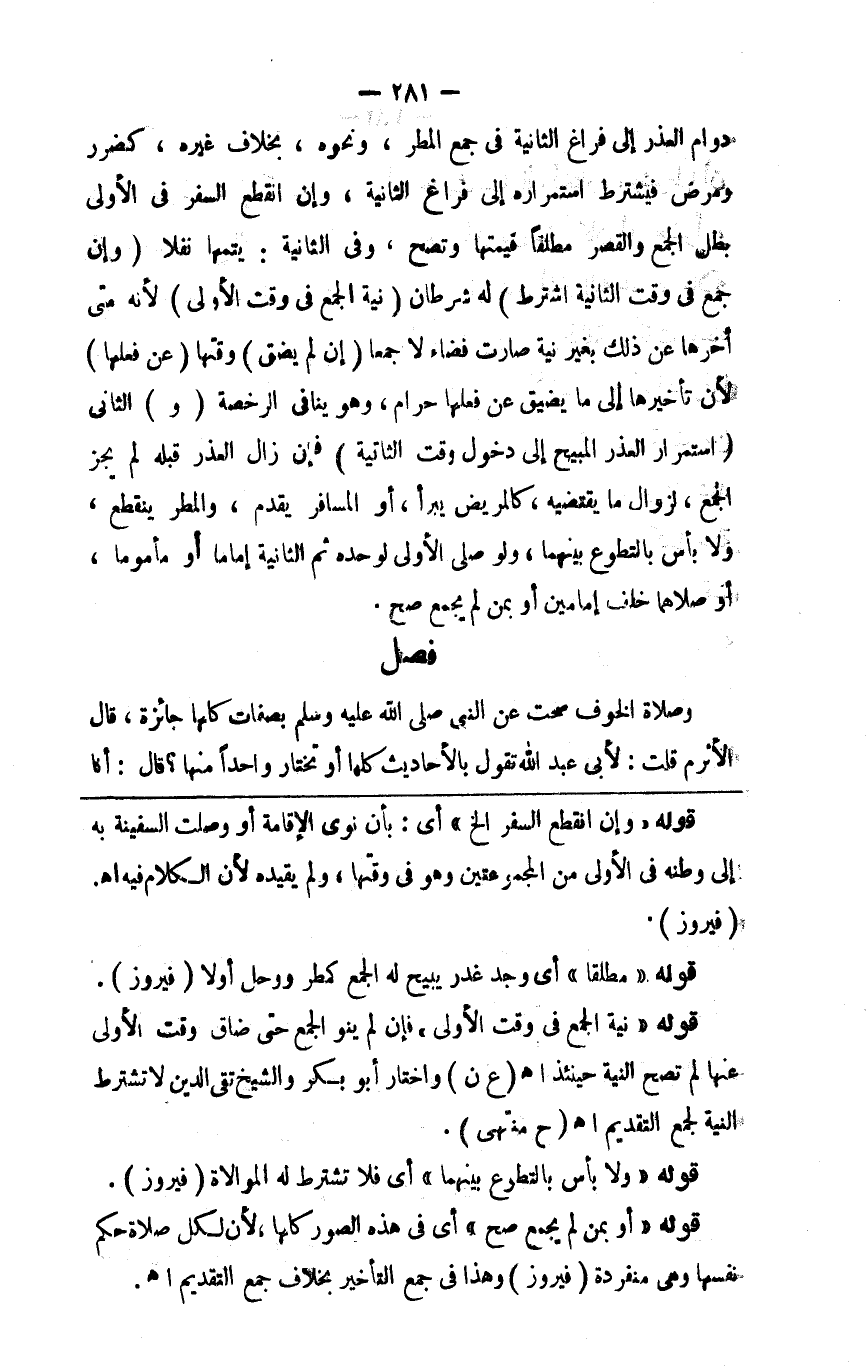 — ٢٨١ —
دوام العذر إلى فراغ الثانية فى جمع المطر ، ونحوه ، بخلاف غيره ، كضرر
ومرض فيشترط استمراره إلى فراغ الثانية ، وإن انقطع السفر فى الأولى
بطل الجمع والقصر مطلقاً فيتمها وتصح ، وفى الثانية : يتمها نفلا ( وإن
جمع فى وقت الثانية اشترط ) له شرطان ( نية الجمع فى وقت الأولى ) لأنه متى
أخرها عن ذلك بغير نية صارت قضاء لا جمعا ( إن لم يضق ) وقتها ( عن فعلها )
لأن تأخيرها إلى ما يضيق عن فعلها حرام ، وهو ينافى الرخصة ( و ) الثانى
( استمرار العذر المبيح إلى دخول وقت الثانية ) فإن زال العذر قبله لم يجز
الجمع ، لزوال ما يقتضيه ، كالمريض يبرأ ، أو المسافر يقدم ، والمطر ينقطع ،
ولا بأس بالتطوع بينهما ، ولو صلى الأولى لوحده ثم الثانية إماما أو مأموما ،
أو صلاهما خلف إمامين أو بمن لم يجمع صح .
فصل
وصلاة الخوف صحت عن النبى صلى الله عليه وسلم بصفات كلها جائزة ، قال
الأثرم قلت : لأبى عبد الله تقول بالأحاديث كلها أو تختار واحداً منها ؟ قال : أنا
قوله « وإن انقطع السفر الخ » أى : بأن نوى الإقامة أو وصلت السفينة به
إلى وطنه فى الأولى من المجموعتين وهو فى وقتها ، ولم يقيده لأن الكلام فيه اه‍.
( فيروز ) .
قوله « مطلقا » أى وجد غدر يبيح له الجمع كمطر ووحل أولا ( فيروز ) .
قوله « نية الجمع فى وقت الأولى » فإن لم ينو الجمع حتى ضاق وقت الأولى
عنها لم تصح النية حينئذ اه‍ ( ع ن ) واختار أبو بكر والشيخ تقى الدين لا تشترط
النية لجمع التقديم اه‍ ( ح منتهى ) .
قوله « ولا بأس بالتطوع بينهما » أى فلا تشترط له الموالاة ( فيروز ) .
قوله « أو بمن لم يجمع صح » أى فى هذه الصور كلها ، لأن لكل صلاة حكم
نفسها وهى منفردة ( فيروز ) وهذا فى جمع التأخير بخلاف جمع التقديم اه‍ .